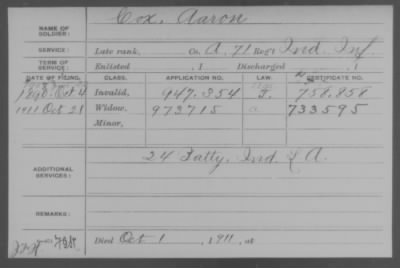 NAME OF SOLDIER: Cox, Aaron
SERVICE: Late rank, Co. A, 71 Reg't Ind. Inf.
TERM OF SERVICE: Enlisted , 1 Discharged , 1
DATE OF FILING. CLASS. APPLICATION NO. LAW. CERTIFICATE NO.
1890 Oct Invalid, 947.354 758.858
1911 Oct 21 Widow, 973715 a 733595
Minor,
ADDITIONAL SERVICES: 24 Batty. Ind. L A.
REMARKS:
Died Oct 1, 1911, at